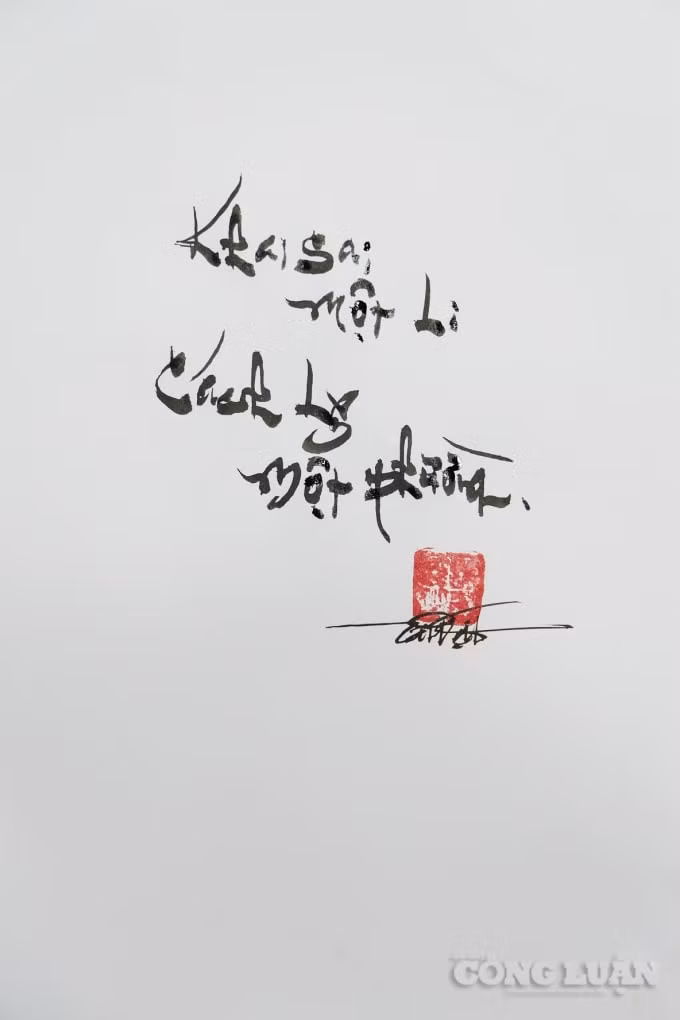 Khai sai
một li
Cách ly
một phường.
CÔNG LUẬN